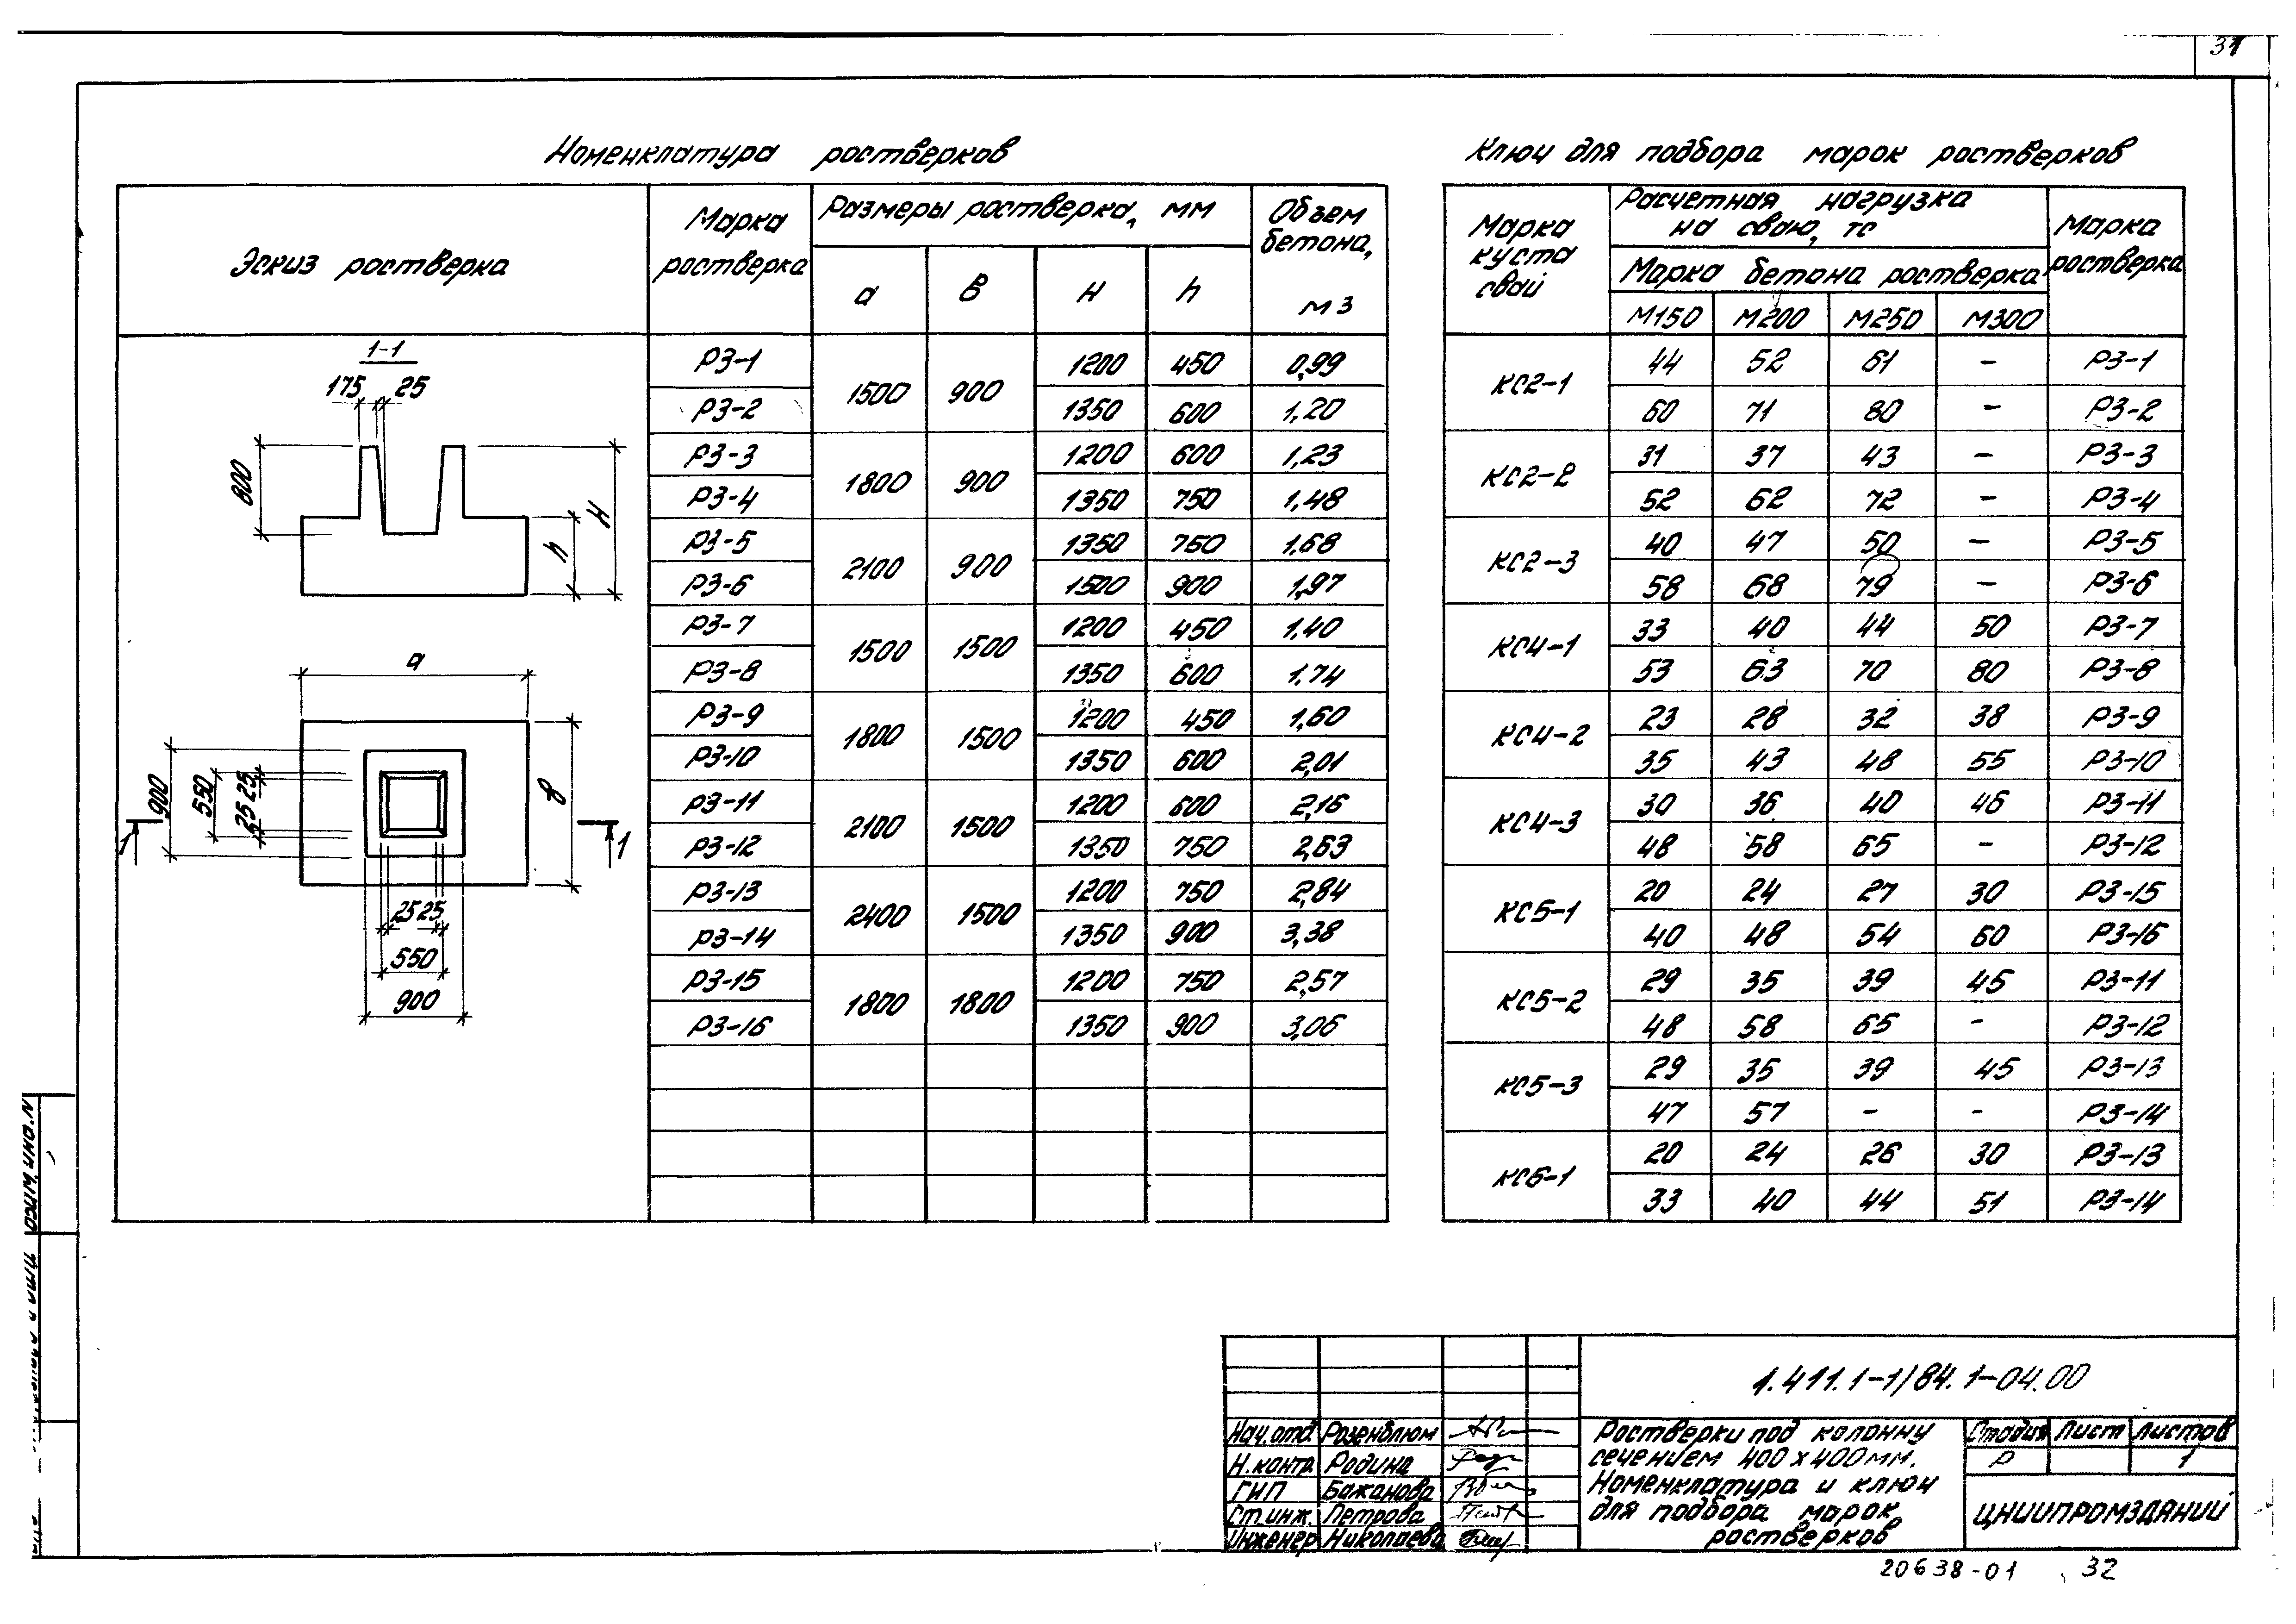 31
Номенклатура ростверков
Эскиз ростверка | Марка ростверка | Размеры ростверка, мм | Объем бетона, м3
а | в | Н | h
Р3-1 | 1500 | 900 | 1200 | 450 | 0,99
Р3-2 | 1350 | 600 | 1,20
Р3-3 | 1800 | 900 | 1200 | 600 | 1,23
Р3-4 | 1350 | 750 | 1,48
Р3-5 | 2100 | 900 | 1350 | 750 | 1,68
Р3-6 | 1500 | 900 | 1,97
Р3-7 | 1500 | 1500 | 1200 | 450 | 1,40
Р3-8 | 1350 | 600 | 1,74
Р3-9 | 1800 | 1500 | 1200 | 450 | 1,60
Р3-10 | 1350 | 600 | 2,01
Р3-11 | 2100 | 1500 | 1200 | 600 | 2,16
Р3-12 | 1350 | 750 | 2,63
Р3-13 | 2400 | 1500 | 1200 | 750 | 2,84
Р3-14 | 1350 | 900 | 3,38
Р3-15 | 1800 | 1800 | 1200 | 750 | 2,57
Р3-16 | 1350 | 900 | 3,06
1-1
175 25
800
h
Н
а
в
900
550
25 25
1 1
25 25
550
900
Ключи для подбора марок ростверков
Марка куста свай | Расчетная нагрузка на сваю, тс | Марка ростверка
Марка бетона ростверка
М150 | М200 | М250 | М300
КС2-1 | 44 | 52 | 61 | - | Р3-1
60 | 71 | 80 | - | Р3-2
КС2-2 | 31 | 37 | 43 | - | Р3-3
52 | 62 | 72 | - | Р3-4
КС2-3 | 40 | 47 | 50 | - | Р3-5
58 | 68 | 79 | - | Р3-6
КС4-1 | 33 | 40 | 44 | 50 | Р3-7
53 | 63 | 70 | 80 | Р3-8
КС4-2 | 23 | 28 | 32 | 38 | Р3-9
35 | 43 | 48 | 55 | Р3-10
КС4-3 | 30 | 36 | 40 | 46 | Р3-11
48 | 58 | 65 | - | Р3-12
КС5-1 | 20 | 24 | 27 | 30 | Р3-15
40 | 48 | 54 | 60 | Р3-16
КС5-2 | 29 | 35 | 39 | 45 | Р3-11
48 | 58 | 65 | - | Р3-12
КС5-3 | 29 | 35 | 39 | 45 | Р3-13
47 | 57 | - | - | Р3-14
КС6-1 | 20 | 24 | 26 | 30 | Р3-13
33 | 40 | 44 | 51 | Р3-14
1.411.1-1/84.1-04.00
Нач.отд. Розенблюм
Н.контр. Родина
ГИП Бажанова
Ст.инж. Петрова
Инженер Николаева
Ростверки под колонну
сечением 400х400мм.
Номенклатура и ключи
для подбора марок
ростверков
Стадия Лист Листов
Р 1
ЦНИИПРОМЗДАНИЙ
20638-01 32